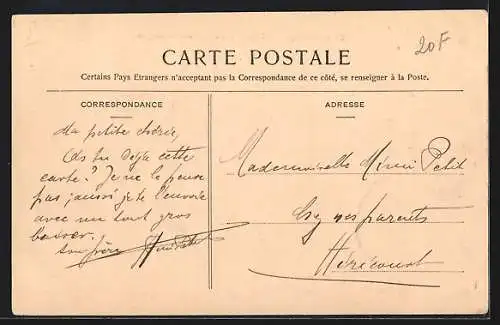 20F
CARTE POSTALE
Certains Pays Etrangers n'acceptant pas la Correspondance de ce côté, se renseigner à la Poste.
CORRESPONDANCE
Ma petite chérie,
As tu déja cette
carte? Je ne le pense
pas j'aussi je te l'envoie
avec un tout gros
baiser.
ton frère
ADRESSE
Mademoiselle Mimi Petit
chez ses parents
Héricourt